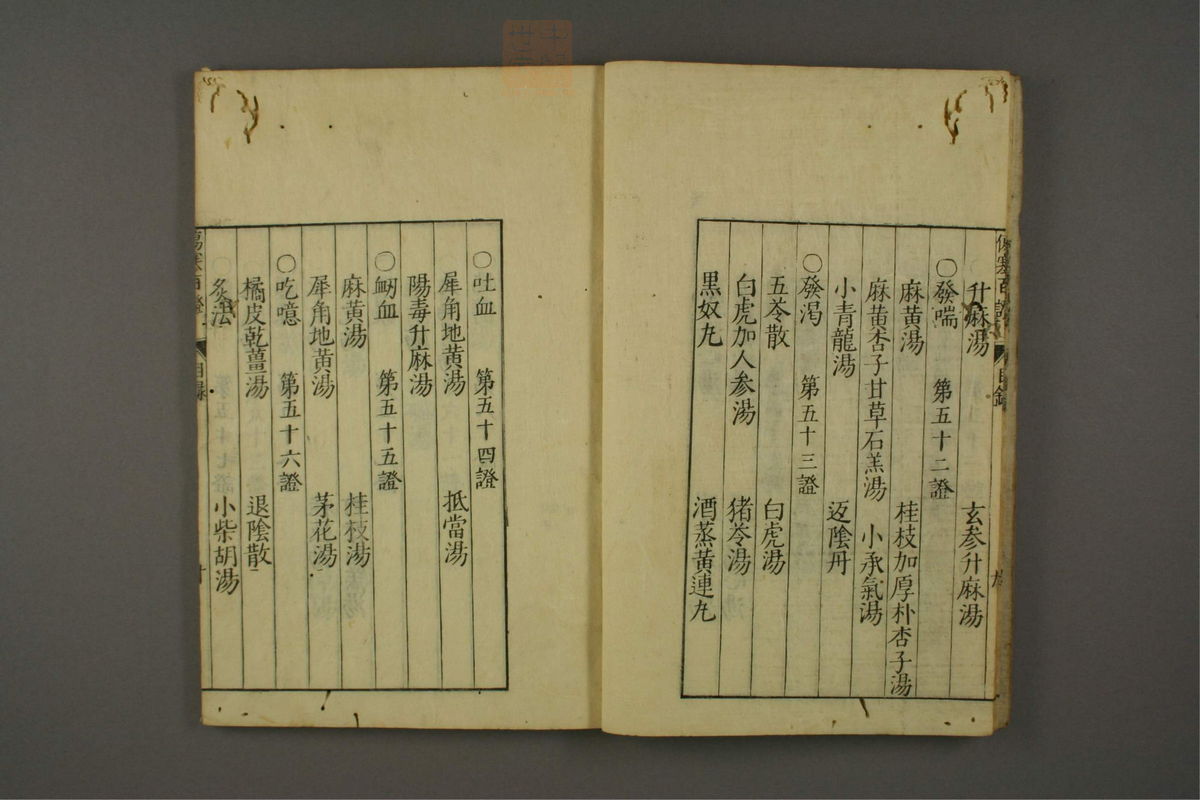 傷寒百證 目錄
升麻湯 玄参升麻湯
〇發喘 第五十二證
麻黄湯 桂枝加厚朴杏子湯
麻黄杏子甘草石羔湯 小承氣湯
小青龍湯 返陰丹
〇發渴 第五十三證
五苓散 白虎湯
白虎加人参湯 猪苓湯
黒奴丸 酒蒸黄連丸
〇吐血 第五十四證
犀角地黄湯 抵當湯
陽毒升麻湯
〇衂血 第五十五證
麻黄湯 桂枝湯
犀角地黄湯 茅花湯
〇吃噫 第五十六證
橘皮乾薑湯 退陰散
炙法 小柴胡湯
傷寒百證 目錄 十